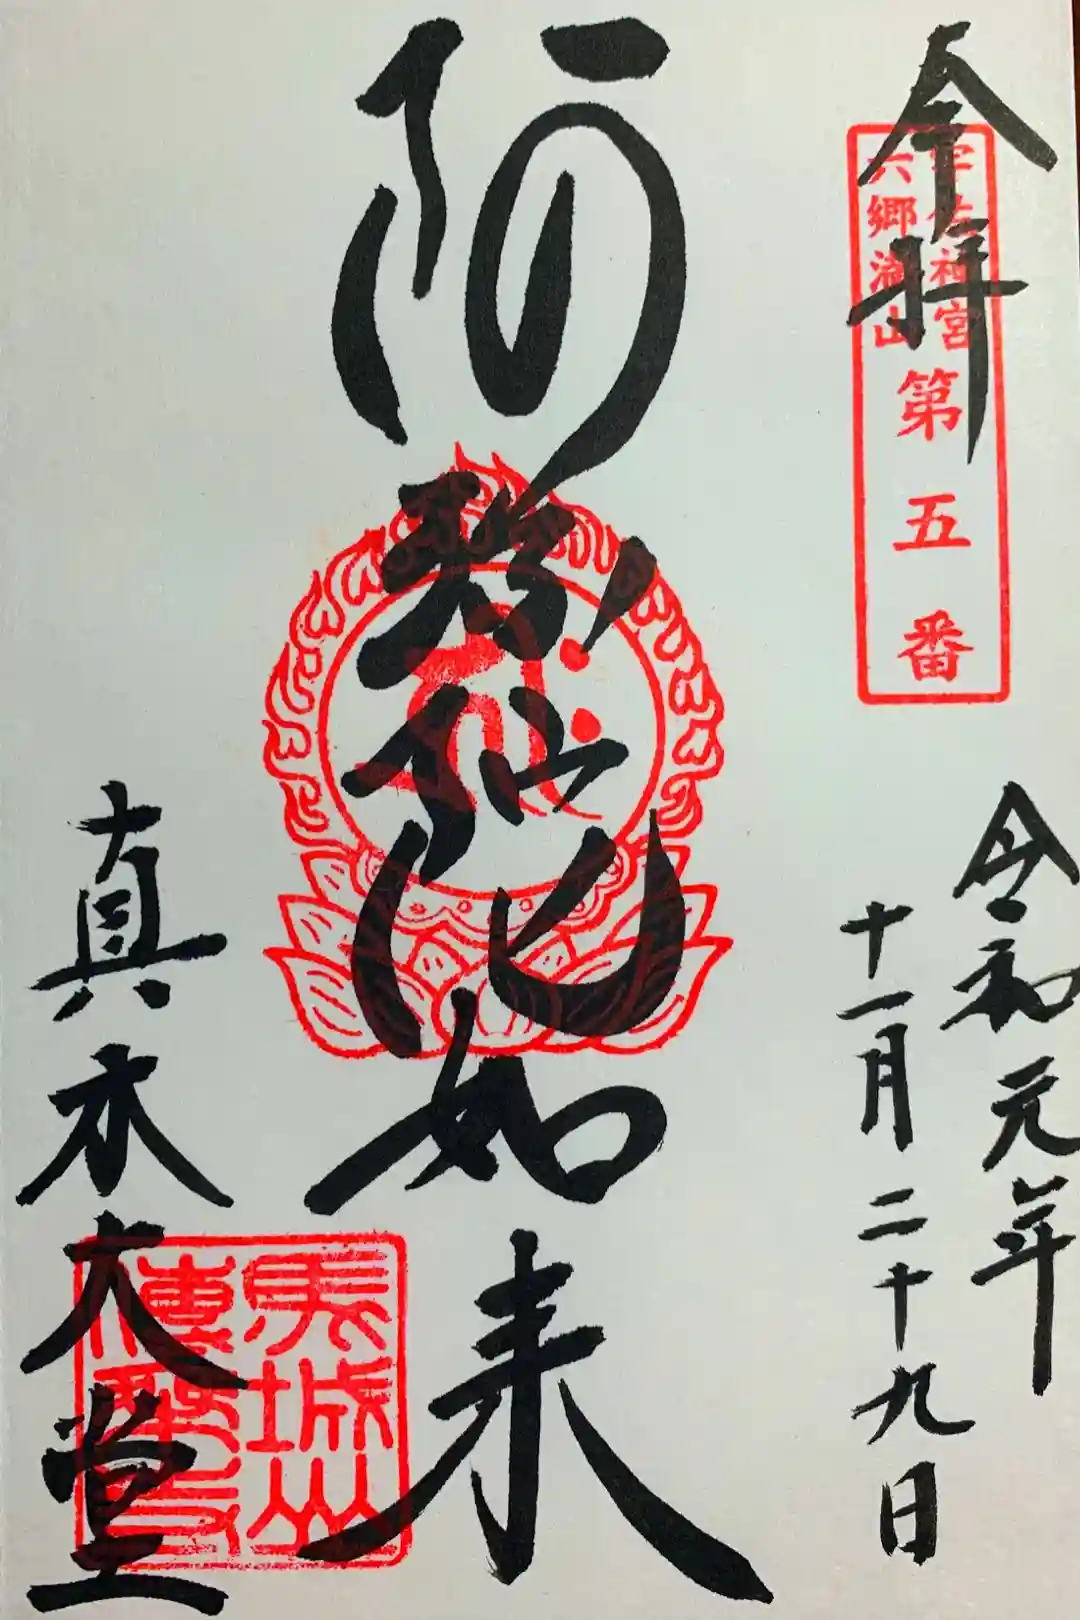 今拝
宇佐神宮
六郷満山
第五番
令和元年
十一月二十九日
阿弥陀如来
真木大堂
馬城山